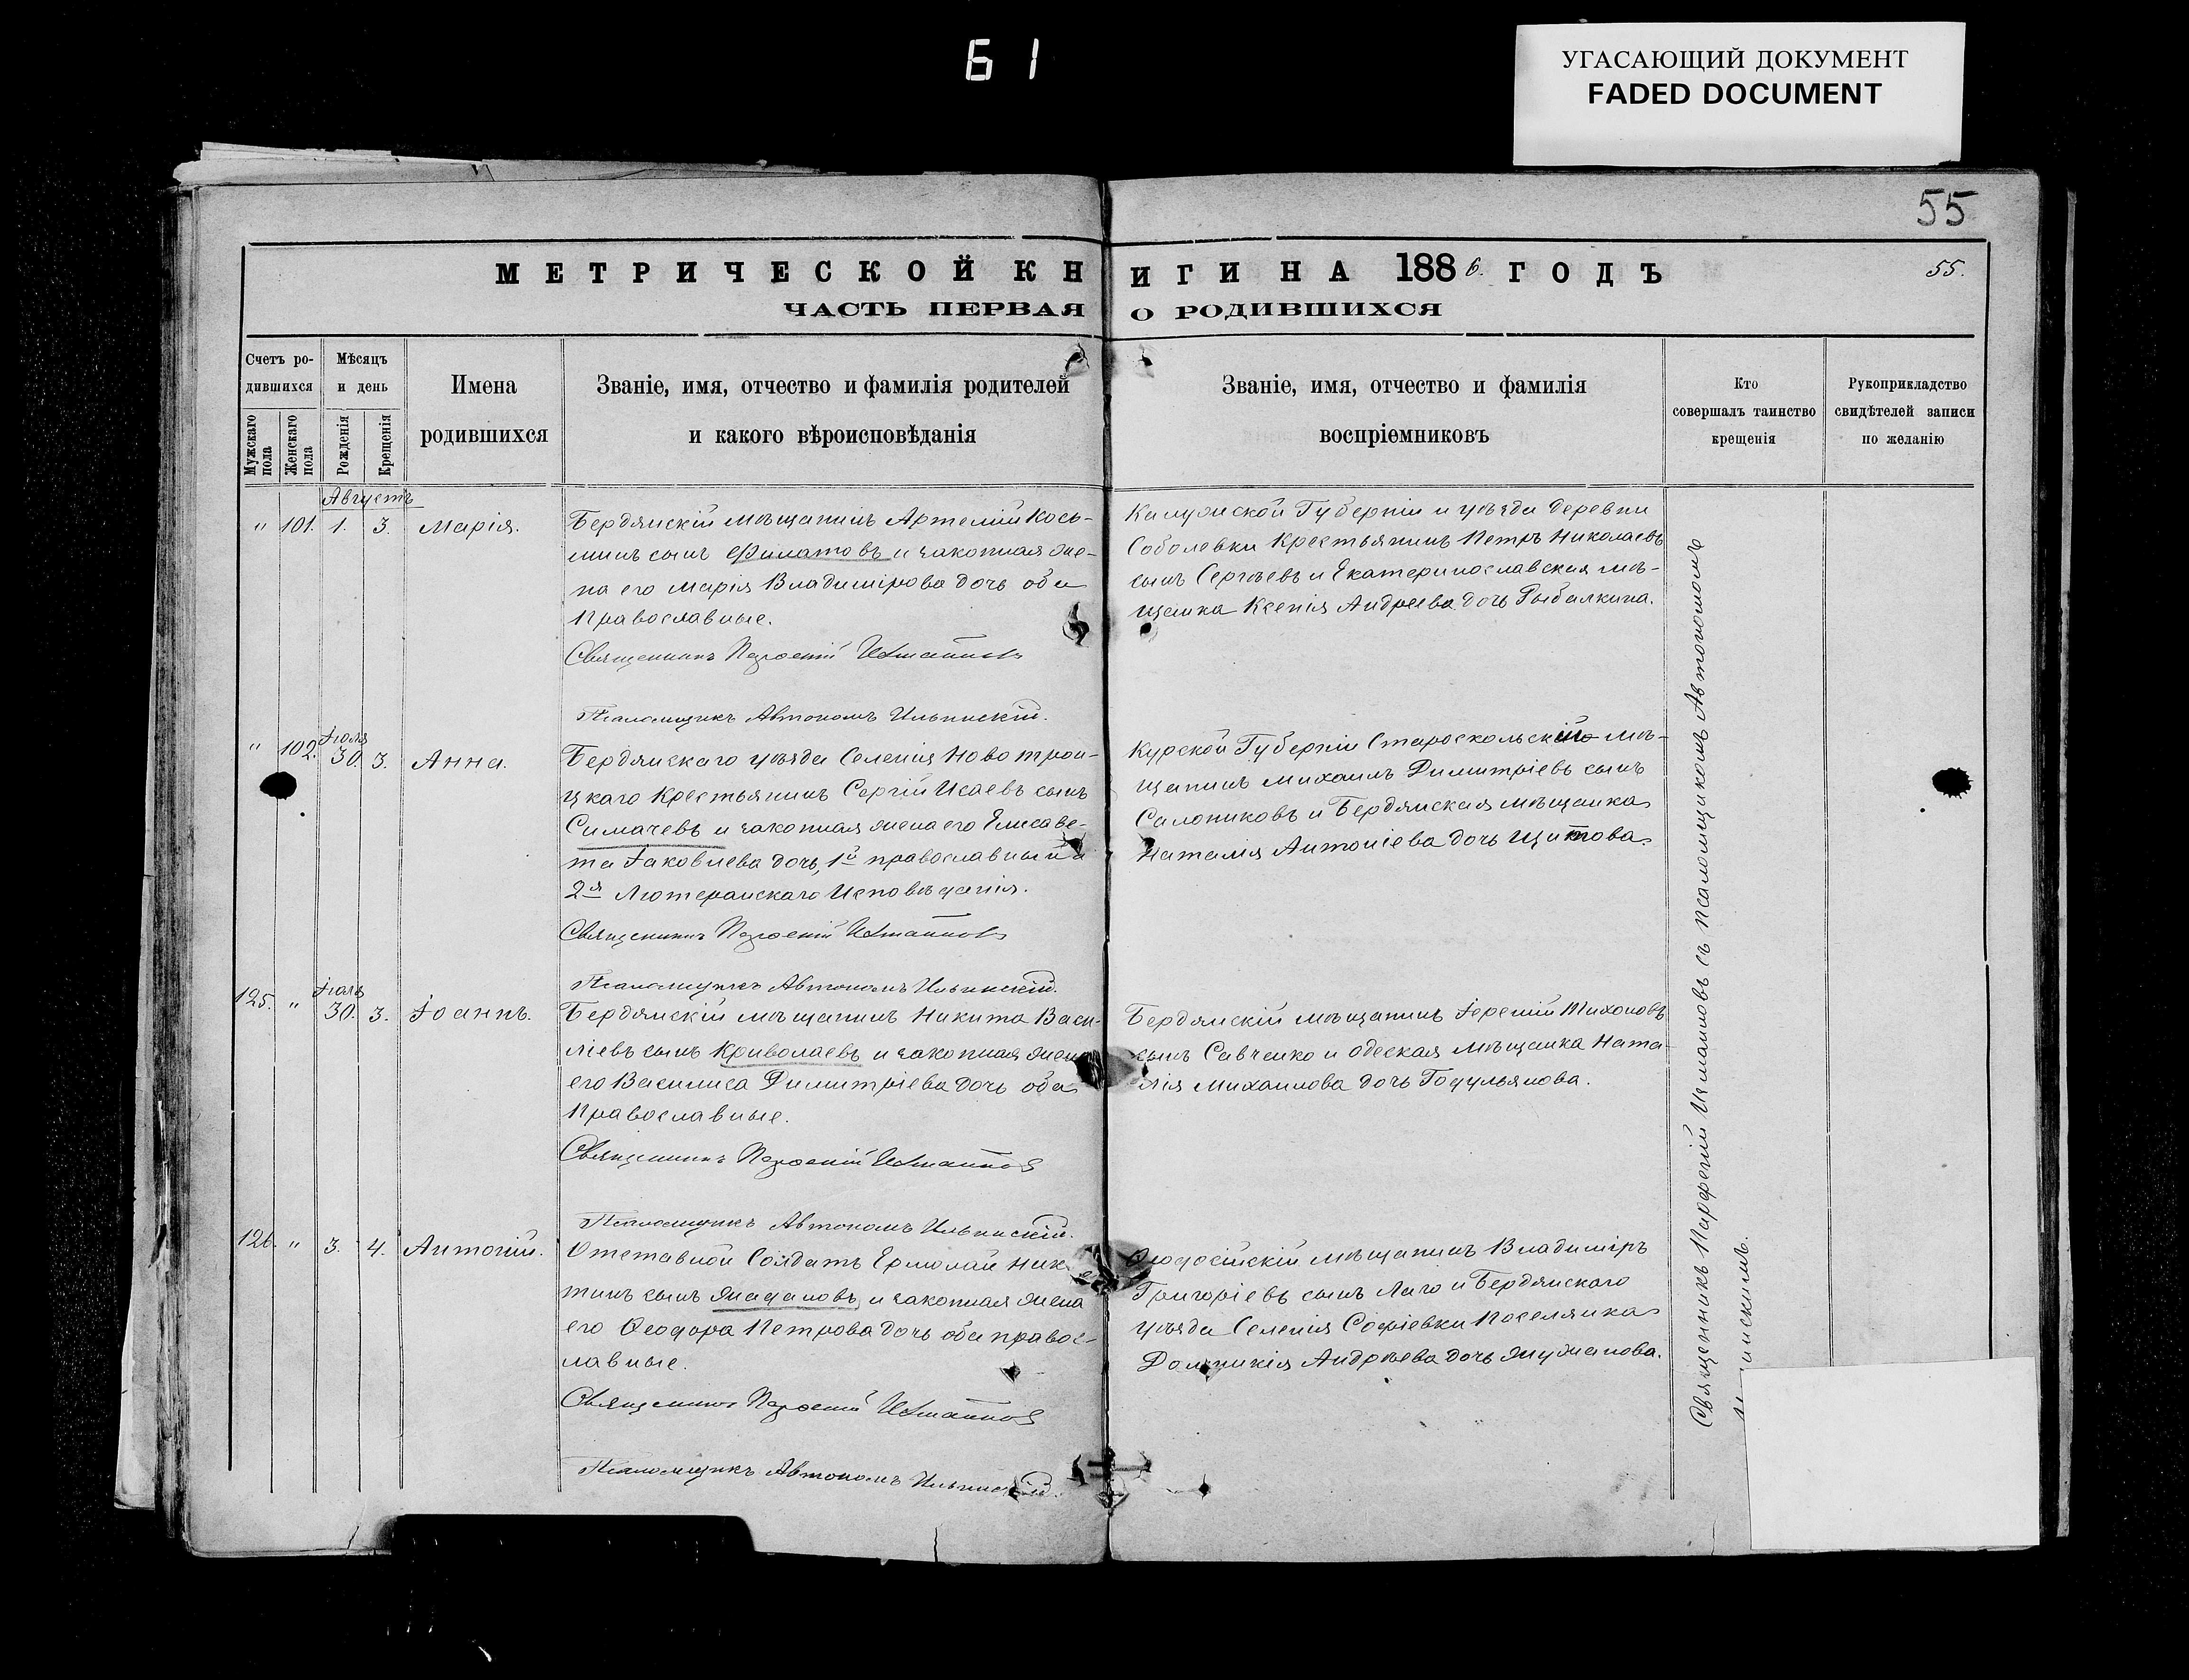 Б 1
УГАСАЮЩИЙ ДОКУМЕНТ
FADED DOCUMENT
55
МЕТРИЧЕСКОЙ КНИГИ НА 1886. ГОДЪ
55.
ЧАСТЬ ПЕРВАЯ О РОДИВШИХСЯ
Счетъ ро-
дившихся
Мужскаго пола
Женскаго пола
Мѣсяцъ
и день
Рожденія
Крещенія
Имена
родившихся
Званіе, имя, отчество и фамилія родителей
и какого вѣроисповѣданія
Званіе, имя, отчество и фамилія
воспріемниковъ
Кто
совершалъ таинство
крещенія
Рукоприкладство
свидѣтелей записи
по желанію
Августъ
" 101. 1. 3. Марія.
Бердянскій мѣщанинъ Артемій Кось-
минъ сынъ Филатовъ и законная же-
на его Марія Владимірова дочь оба
Православные.
Священникъ Парфеній
Псаломщикъ Автономъ Ильинскій.
Калужской Губерніи и уѣзда деревни
Соболевки Крестьянинъ Петръ Николаевъ
сынъ Сергѣевъ и Екатеринославская мѣ-
щанка Ксенія Андреева дочь Рыбалкина.
" 102. Іюля 30. 3. Анна.
Бердянскаго уѣзда Селенія Новотрои-
цкаго Крестьянинъ Сергій Исаевъ сынъ
Симачевъ и законная жена его Елисаве-
та Іаковлева дочь, 1й православный а
2я Лютеранскаго Исповѣданія.
Священникъ Парфеній
Псаломщикъ Автономъ Ильинскій.
Курской Губерніи Старооскольскій мѣ-
щанинъ Михаилъ Димитріевъ сынъ
Салониковъ и Бердянская мѣщанка
Наталія Антоніева дочь Щитова.
125. " Іюль 30. 3. Іоаннъ.
Бердянскій мѣщанинъ Никита Васи-
ліевъ сынъ Криволаевъ и законная жена
его Василиса Димитріева дочь оба
Православные.
Священникъ Парфеній
Псаломщикъ Автономъ Ильинскій.
Бердянскій мѣщанинъ Іеремій Тихоновъ
сынъ Савченко и одеская мѣщанка Ната-
лія Михаилова дочь Годульянова.
126. " 3. 4. Антоній.
Отставной Солдатъ Ермолай Ники-
тинъ сынъ Жадановъ и законная жена
его Ѳеодора Петрова дочь оба правос-
лавные.
Священникъ Парфеній
Псаломщикъ Автономъ Ильинскій.
Ѳеодосійскій мѣщанинъ Владиміръ
Григоріевъ сынъ Лаго и Бердянскаго
уѣзда Селенія Софіевки Поселянка
Домникія Андрѣева дочь Жужанова.
Священникъ Парфеній съ псаломщикомъ Автономомъ